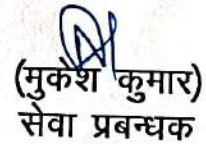 (मुकेश कुमार)
सेवा प्रबन्धक